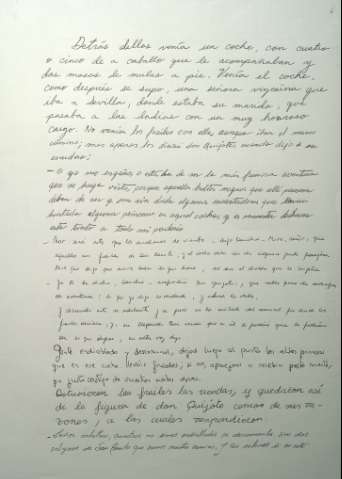 Detrás dellos venía un coche, con cuatro
o cinco de a caballo que le acompañaban y
dos mozos de mulas a pie. Venía el coche,
como después se supo, una señora vizcaína que
iba a Sevilla, donde estaba su marido, que
pasaba a las Indias con un muy honroso
cargo. No venían los frailes con ella, aunque iban el mesmo
camino; mas apenas los divisó don Quijote, cuando dijo a su
escudero:
— O yo me engaño, o esta ha de ser la más famosa aventura
que se haya visto, porque aquellos bultos negros que allí parecen
deben de ser y son sin duda algunos encantadores que llevan
hurtada alguna princesa en aquel coche, y es menester deshacer
este tuerto a todo mi poderío
- Peor será esto que los molinos de viento - dijo Sancho - Mire, señor, que
aquellos son frailes de San Benito, y el coche debe ser de alguna gente pasajera
Mire que digo que mire bien lo que hace, no sea el diablo que le engañe
- Ya te he dicho, Sancho - respondió don Quijote -, que sabes poco de achaque
de aventuras: lo que yo digo es verdad, y ahora lo verás.
Y diciendo esto se adelantó y se puso en la mitad del camino por donde los
frailes venían, y en
que dijese, en alta voz dijo:
Gente endiablada y descomunal, dejad luego al punto las altas princesas
que en ese coche lleváis forzadas; si no, aparejaos a recibir presta muerte,
por justo castigo de vuestras malas obras.
Detuvieron los frailes las riendas, y quedaron así
de la figura de don Quijote como de sus ra-
zones, a las cuales respondieron:
- Señor caballero, nosotros no somos endiablados ni descomunales, sino dos
religiosos de San Benito que